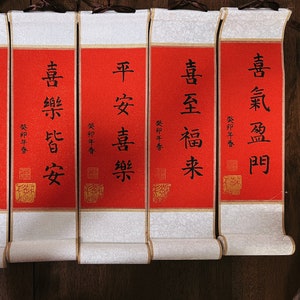 喜氣盈門
癸卯年春
喜至福来
癸卯年春
平安喜樂
癸卯年春
喜樂皆安
癸卯年春